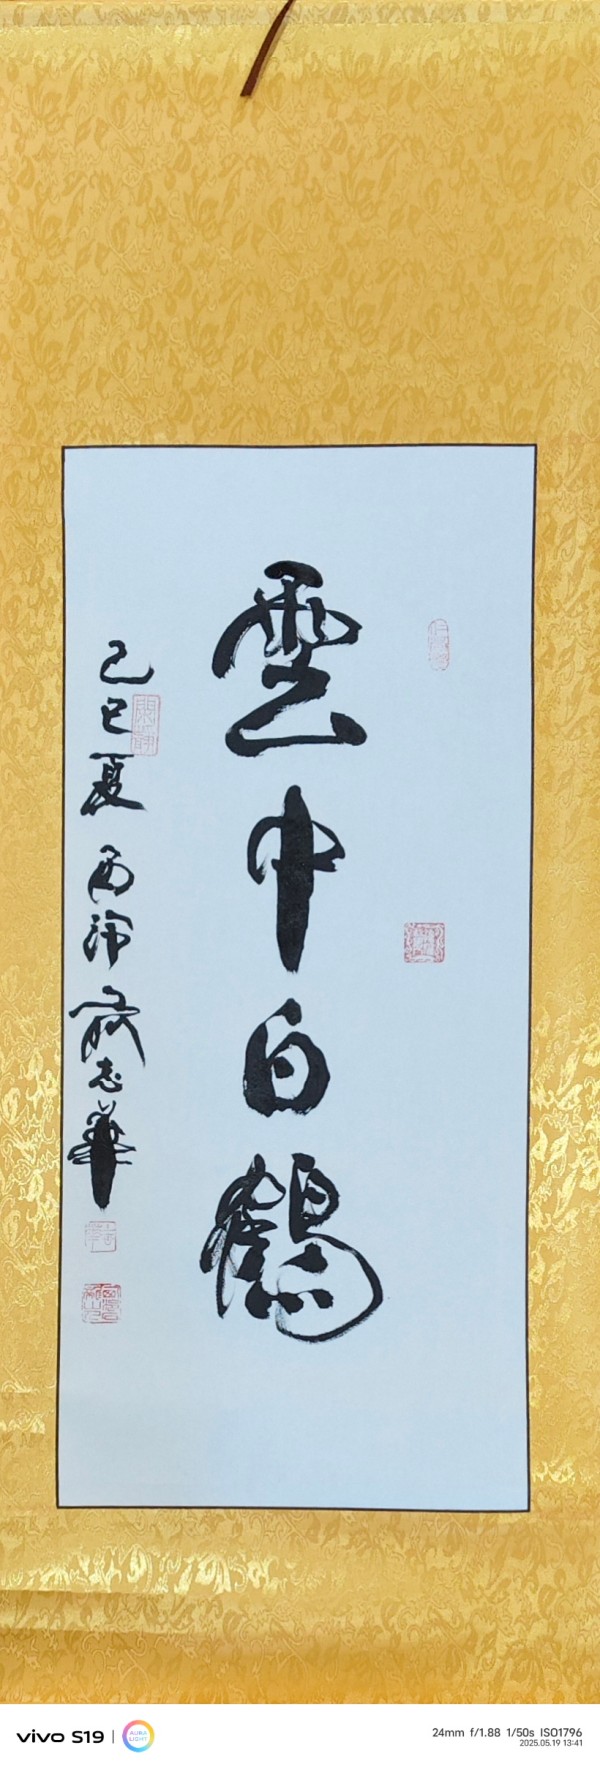 雲中白鶴
己巳夏
志華
vivo S19 | AURA LIGHT
24mm f/1.88 1/50s ISO1796
2025.05.19 13:41